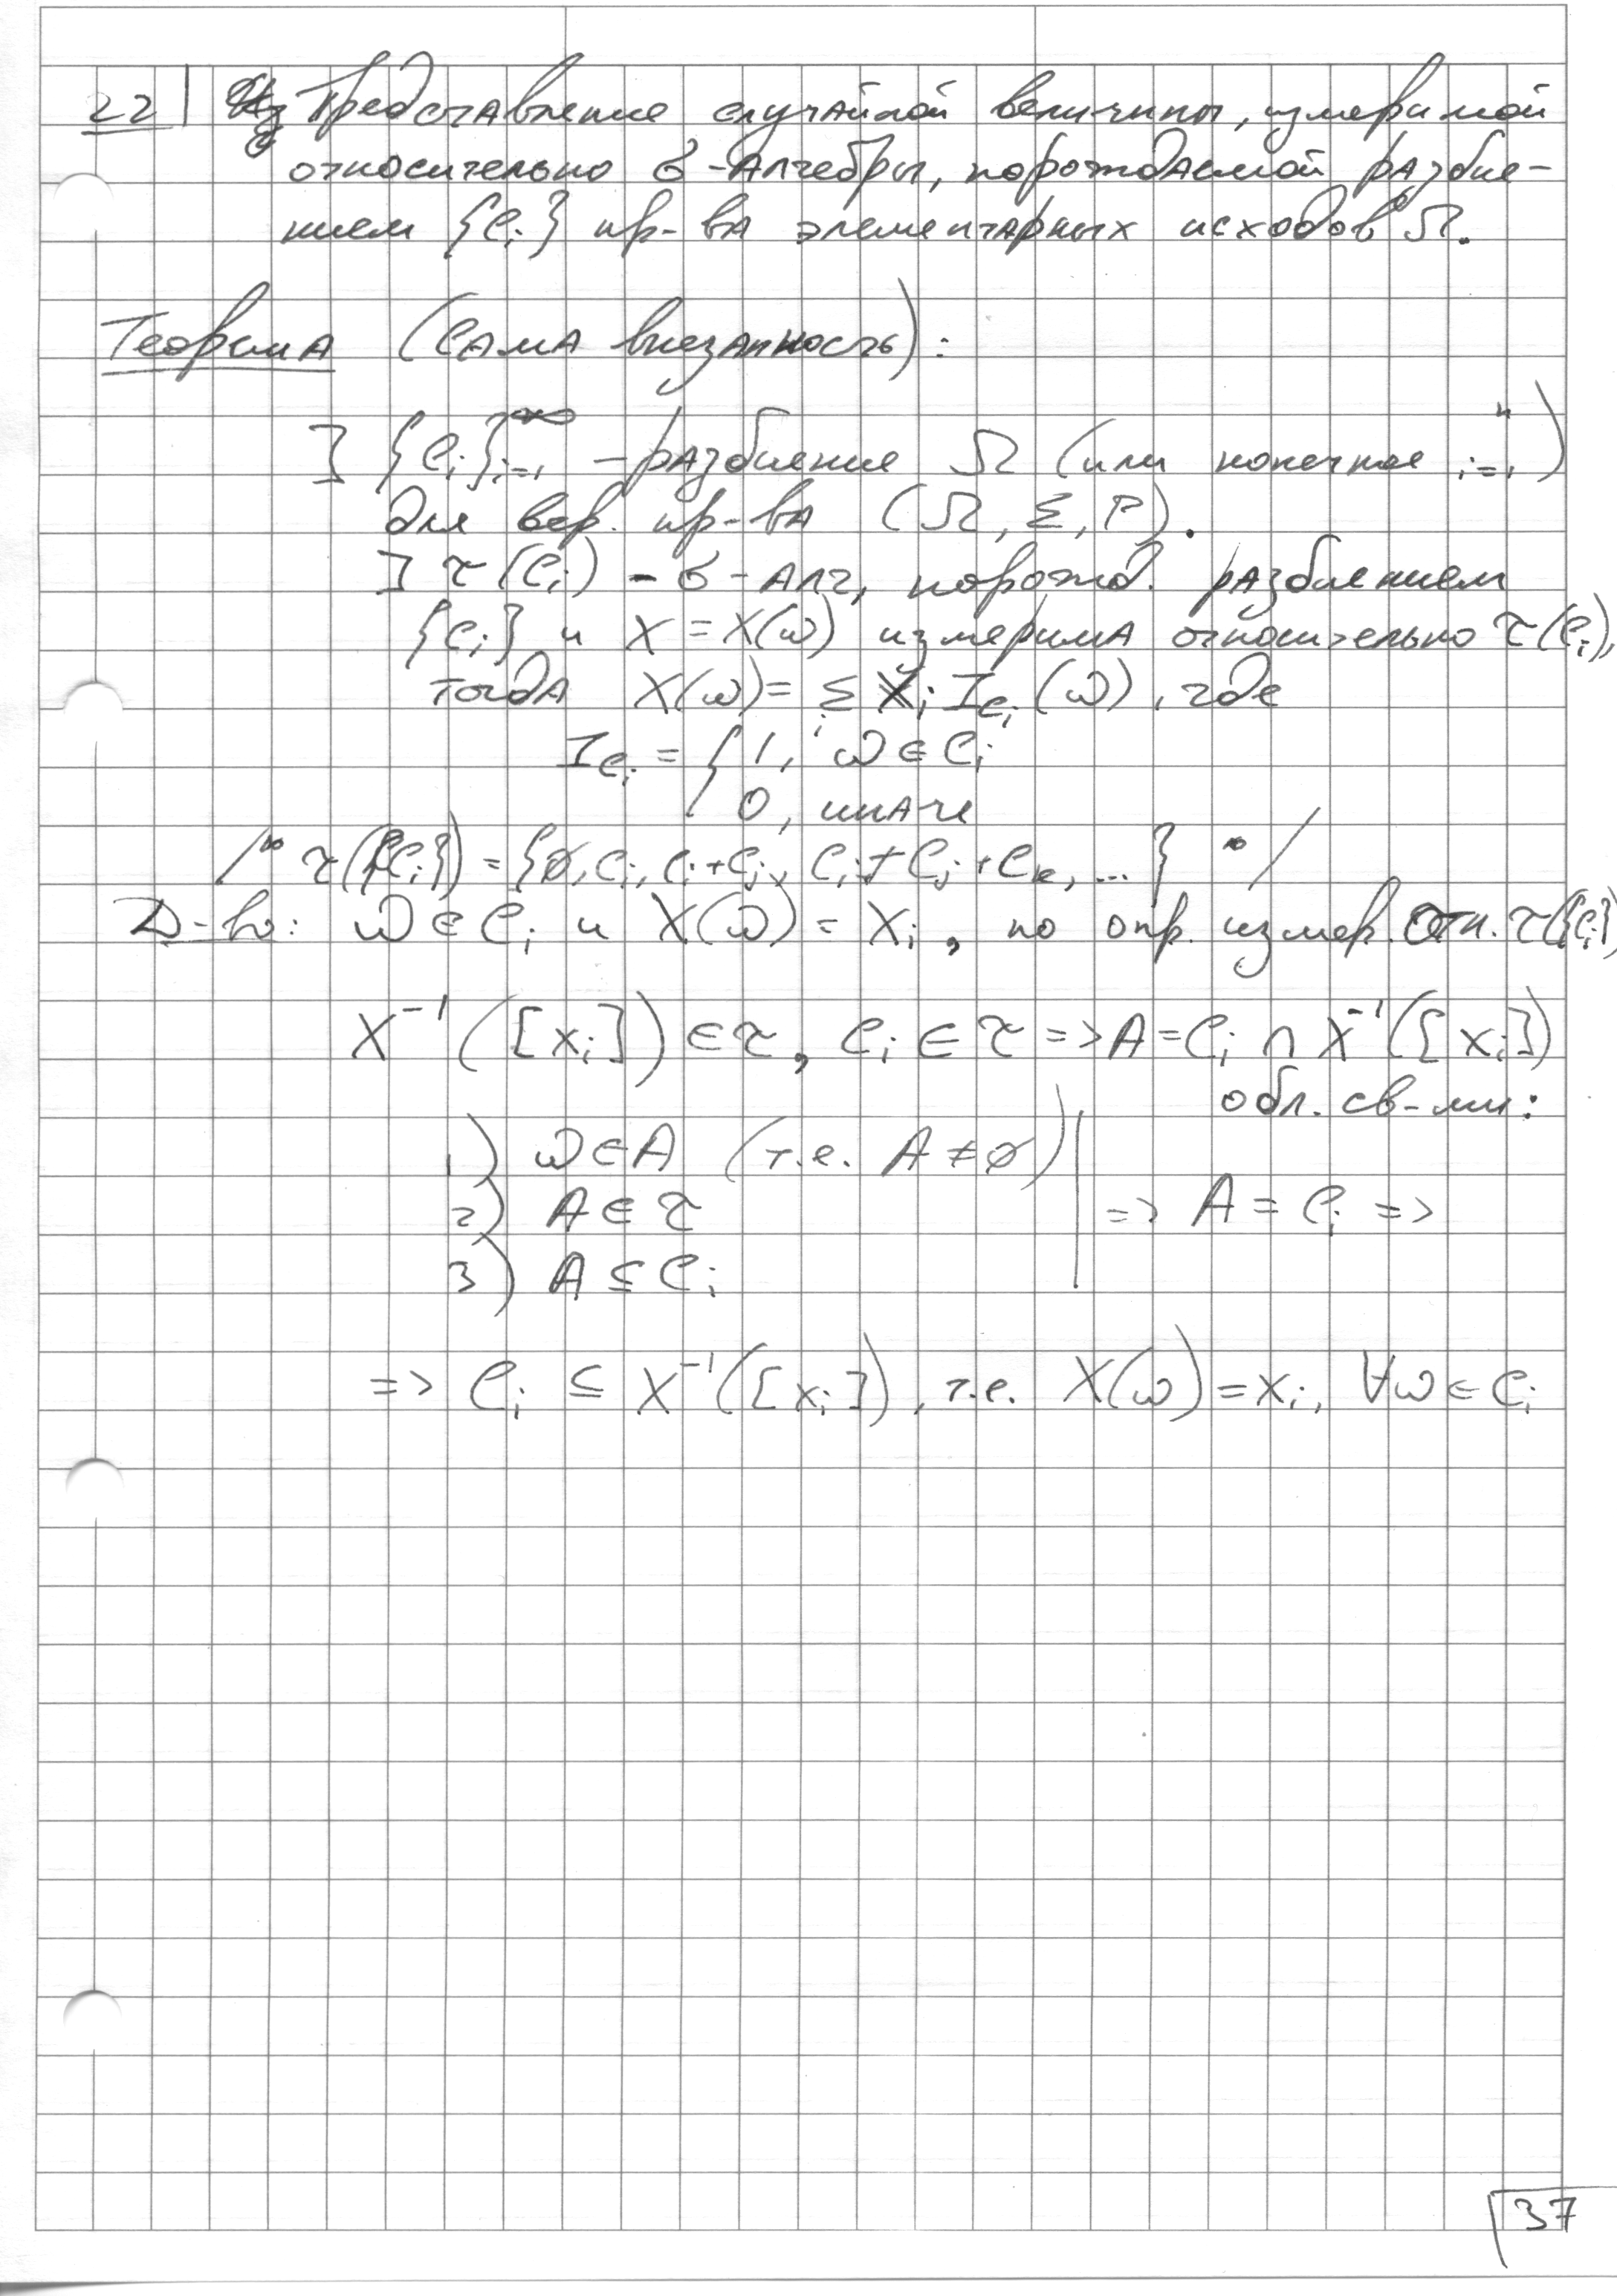 22 Представление случайной величины, измеримой
относительно σ-алгебры, порождаемой разбие-
нием {Ci} пр-ва элементарных исходов Ω.
Теорема (Сама внезапность):
] {Ci}i=1^∞ – разбиение Ω (или конечное i=1^n)
для вер. пр-ва (Ω, Σ, P).
] τ(Ci) - σ-алг, порожд. разбиением
{Ci} и X = X(ω) измерима относительно τ(Ci),
тогда X(ω) = Σi Xi ICi(ω), где
ICi = { 1, ω ∈ Ci
0, иначе
/* τ({Ci}) = {∅, Ci, Ci+Cj, Ci+Cj+Ck, ...} */
Д-во: ω ∈ Ci и X(ω) = Xi, по опр. измер. отн. τ({Ci})
X⁻¹([xi]) ∈ τ, Ci ∈ τ => A = Ci ∩ X⁻¹([xi])
обл. св-ми:
1) ω ∈ A (т.е. A ≠ ∅)
2) A ∈ τ => A = Ci =>
3) A ⊆ Ci
=> Ci ⊆ X⁻¹([xi]), т.е. X(ω) = xi, ∀ω ∈ Ci
37